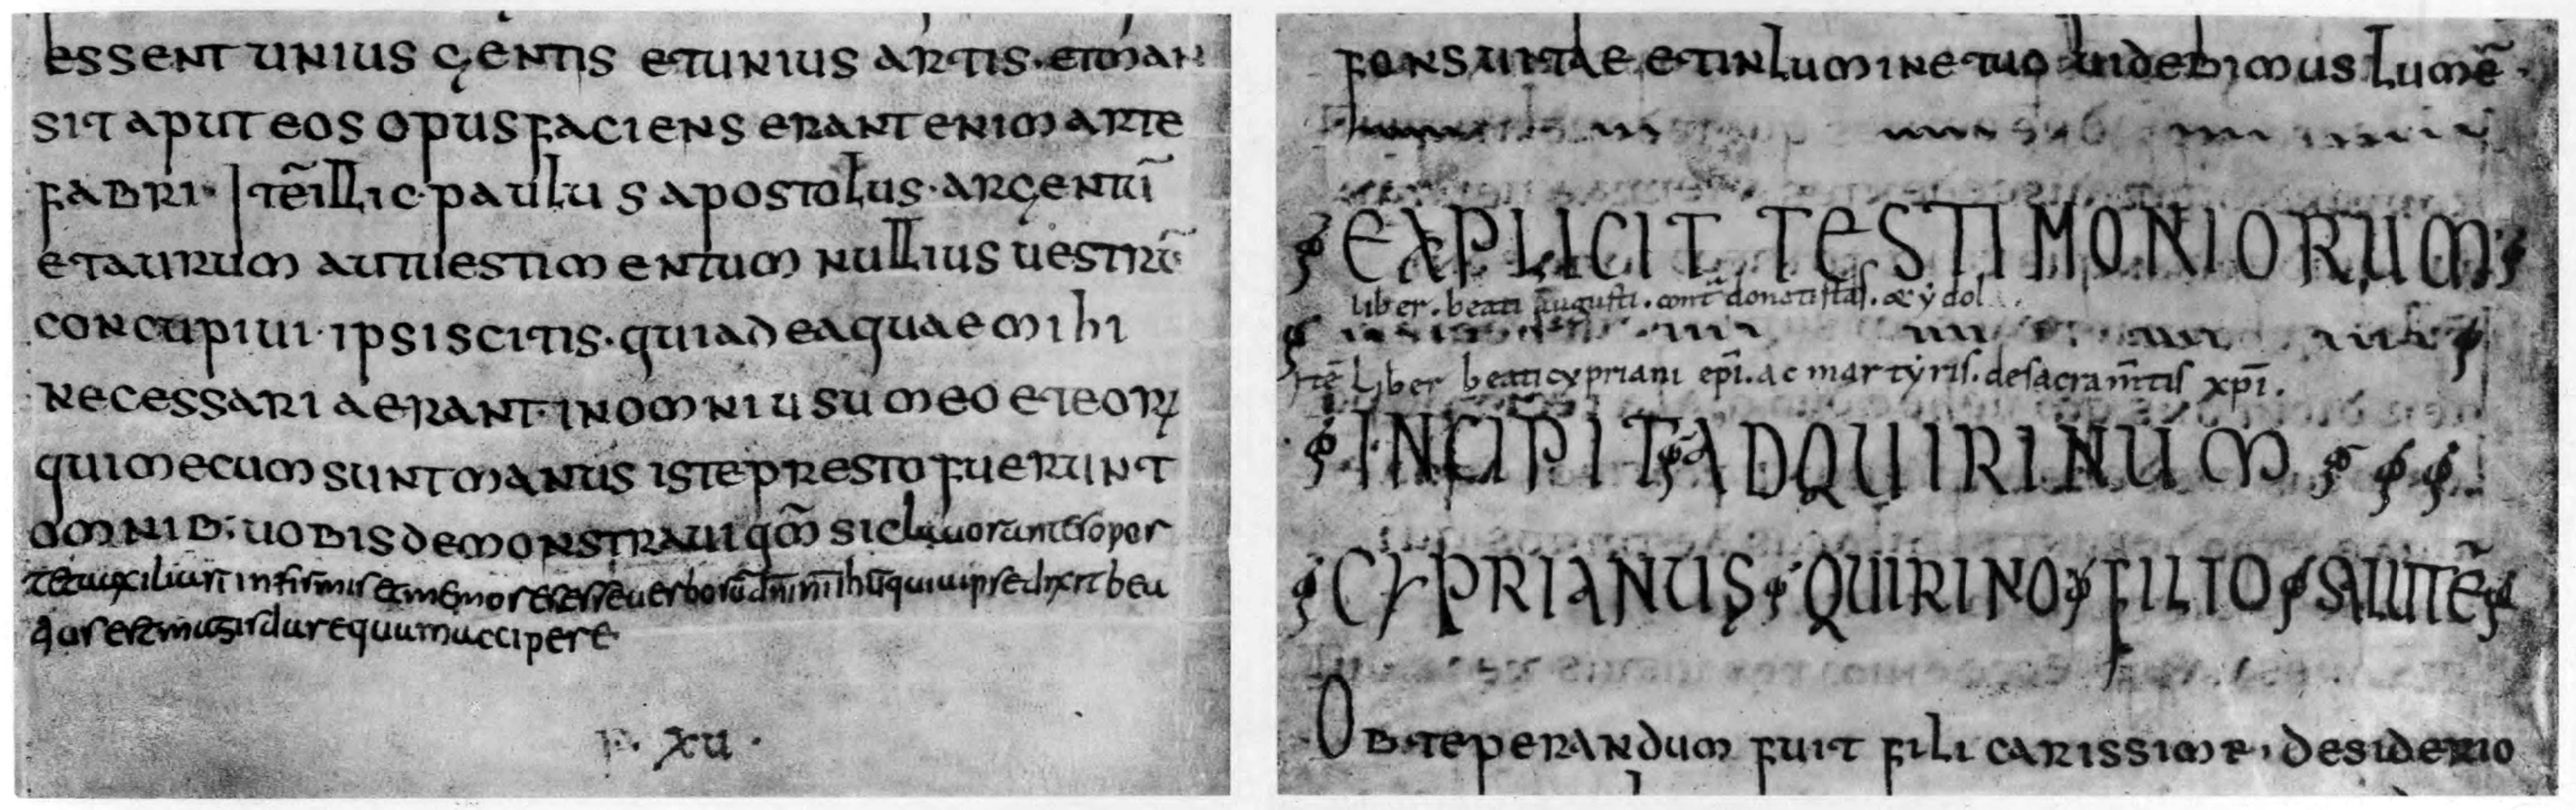 essent unius gentis et unius artis · et man
sit aput eos opus faciens erant enim arte
fabri · Itē illic paulus apostolus · argentū
et aurum aut uestimentum nullius uestrū
concupiui · ipsi scitis · quia d ea quae mihi
necessaria erant · in omnius um eo et eorꝝ
qui mecum sunt manus iste presto fuerunt
omnib; uobis demonstraui qm̄ sic lauorantes oper
tet auxiliari infirmis et memores esse uerborū dn̄i ih̄u quia ipse dixit beu
q̄or est magis dare quam accipere
xu ·
fons uitae et in lumine tuo uidebimus lumē ·
EXPLICIT TESTIMONIORUM
liber . beati augusti . cont̄ donatistas . & ydol
Itē Liber beati cypriani ep̄i . ac martyris . de sacram̄tis xp̄i .
INCIPIT AD QUIRINUM
CYPRIANUS QUIRINO FILIO SALUTĒ
Obteperandum fuit fili carissime · desiderio